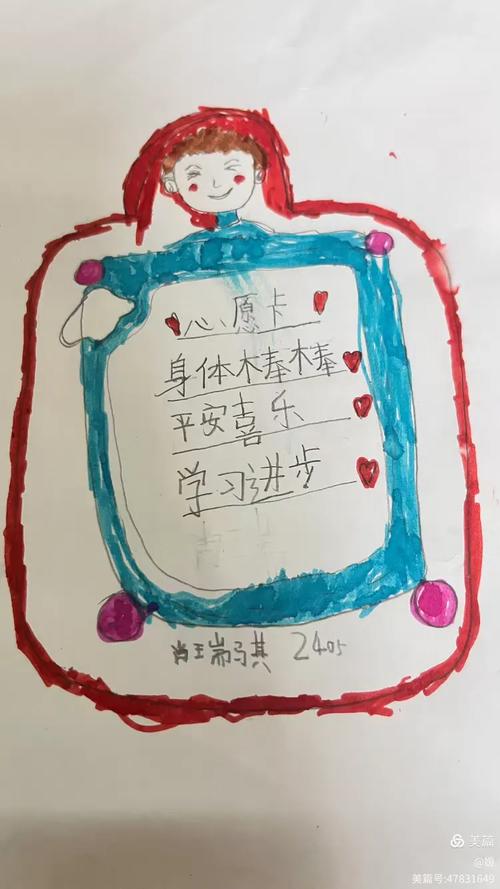 心愿卡
身体棒棒
平安喜乐
学习进步
瑞琪 2405
美篇
@嫚
美篇号:47831649